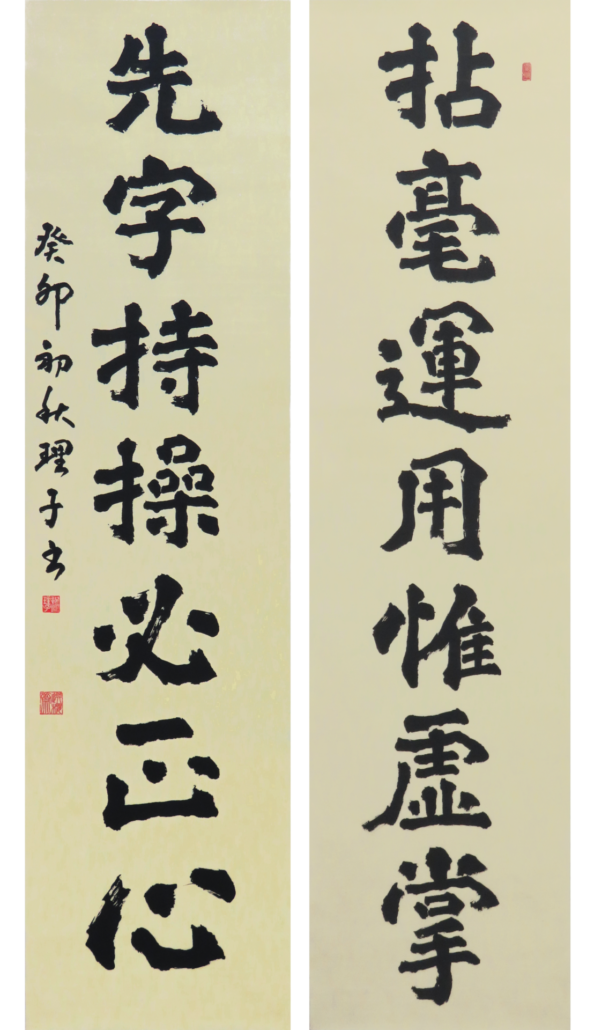 拈毫運用惟虛掌
先字持操必正心
癸卯初秋理子书